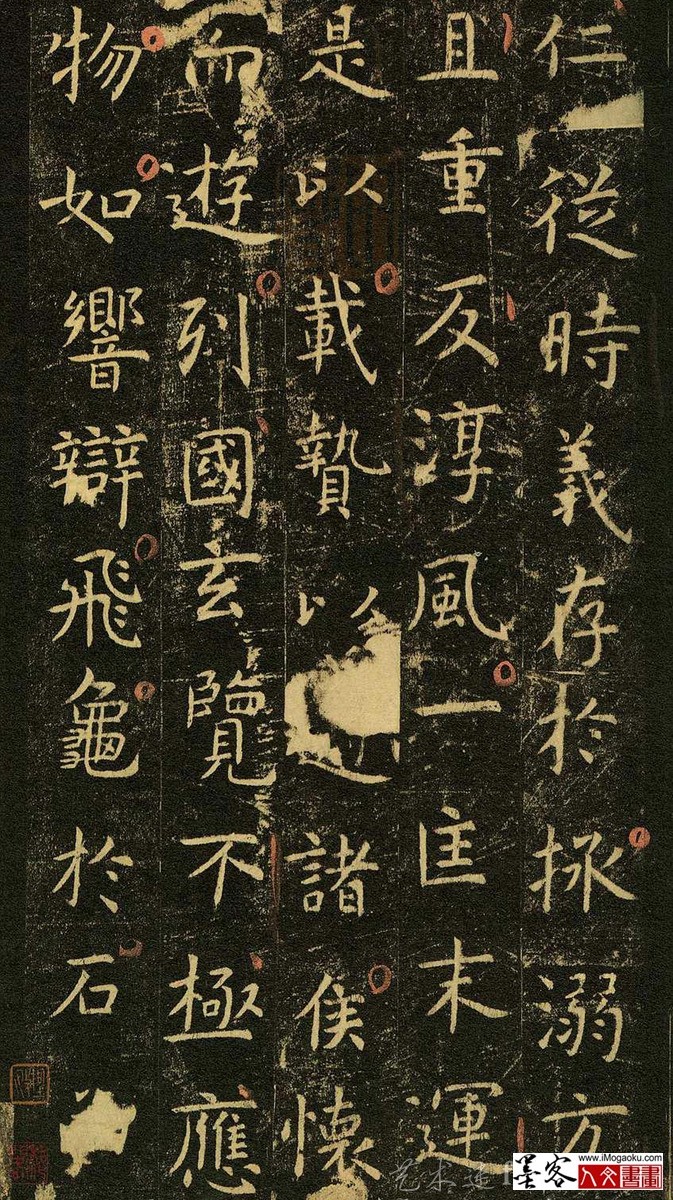 仁從時義存於拯溺方
且重反淳風一匡末運
是以載贄以諸侯懷
而遊列國玄覽不極應
物如響辯飛龜於石
www.iMogaoku.com
墨客人文書畫